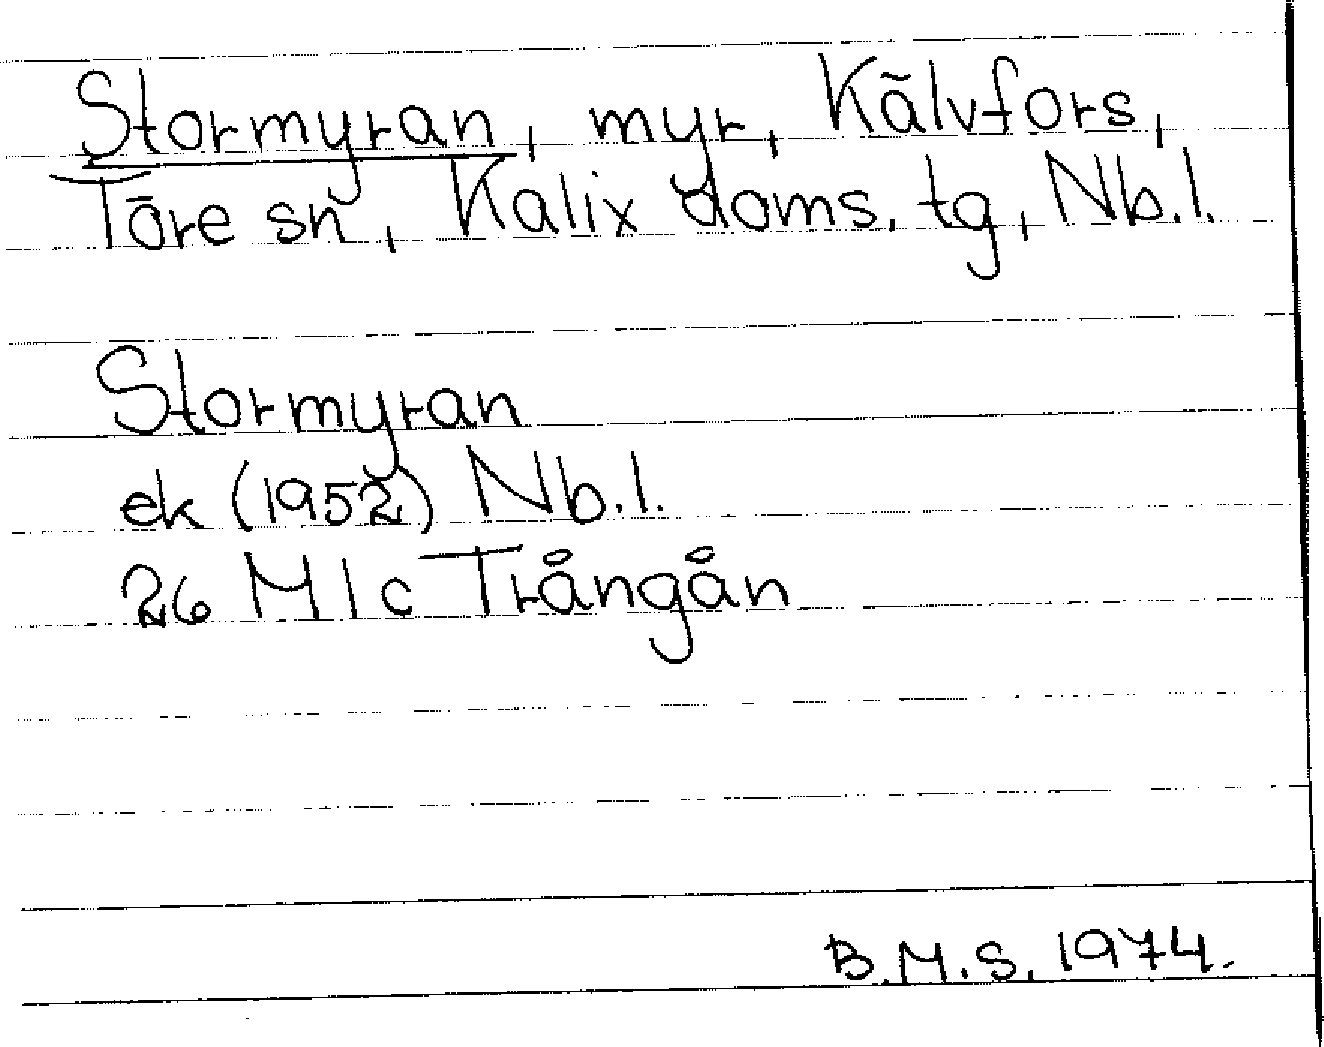 Stormyran, myr, Kälvfors,
Töre sn, Kalix doms. tg, Nb.l.
Stormyran
ek (1952) Nb.l.
26 M l c Trångån
B.M.S. 1974.